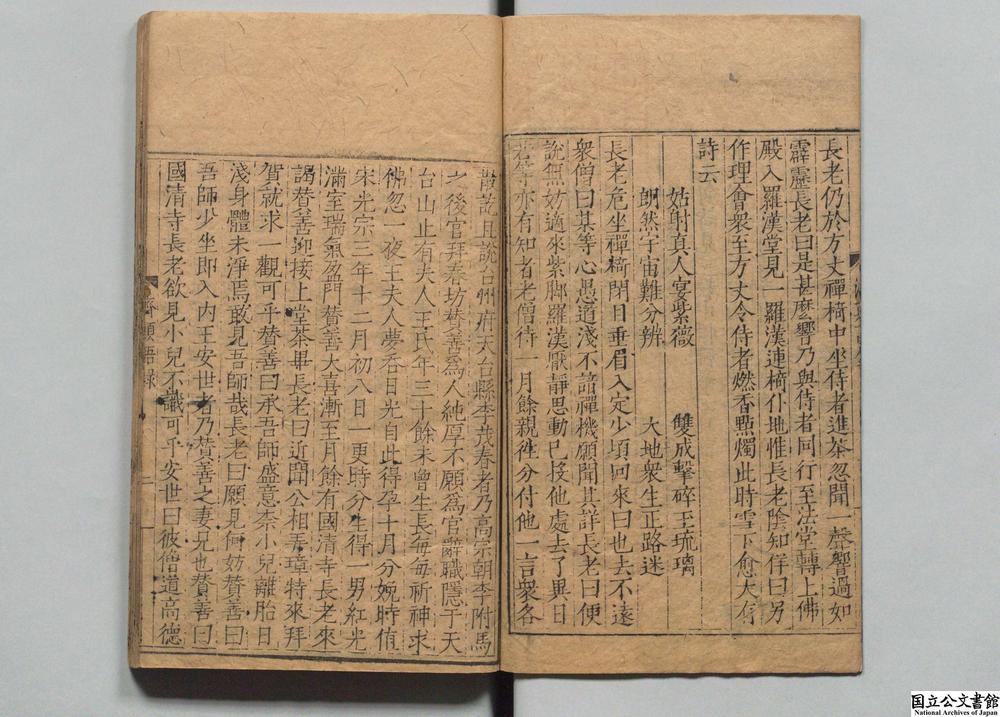 長老仍於方丈禪椅中坐侍者進茶忽聞一聲響過如
霹靂長老曰是甚麽響乃與侍者同行至法堂轉上佛
殿入羅漢堂見一羅漢連椅仆地惟長老陰知佯曰另
作理會衆至方丈令侍者燃香點燭此時雪下愈大有
詩云
姑射真人宴紫薇 雙成擊碎玉琉璃
朗然宇宙難分辨 大地衆生正路迷
長老危坐禪椅閉目垂眉入定少頃回來曰也去不遠
衆僧曰某等心愚道淺不諳禪機願聞其詳長老曰便
說無妨適來紫脚羅漢厭靜思動已投他處去了異日
若等亦有知者老僧待一月餘親徃分付他一言衆各
散訖且說台州府天台縣李茂春者乃高宗朝李附馬
之後官拜春坊賛善爲人純厚不願爲官辭職隱于天
台山止有夫人王氏年三十餘未曾生長每每祈神求
佛忽一夜王夫人夢吞日光自此得孕十月分娩時值
宋光宗三年十二月初八日一更時分生得一男紅光
滿室瑞氣盈門賛善大喜漸至月餘有國清寺長老來
謁賛善迎接上堂茶畢長老曰近聞公相弄璋特來拜
賀就求一觀可乎賛善曰承吾師盛意柰小兒離胎日
淺身體未淨焉敢見吾師哉長老曰願見何妨賛善曰
吾師少坐即入内王安世者乃賛善之妻兄也賛善曰
國清寺長老欲見小兒不識可乎安世曰彼僧道高德
濟顛語録
二
国立公文書館
National Archives of Japan